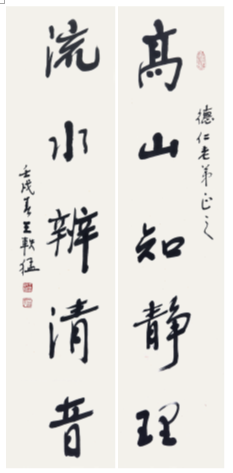 德仁老弟正之
高山知静理
流水辨清音
壬戌春王軟猛